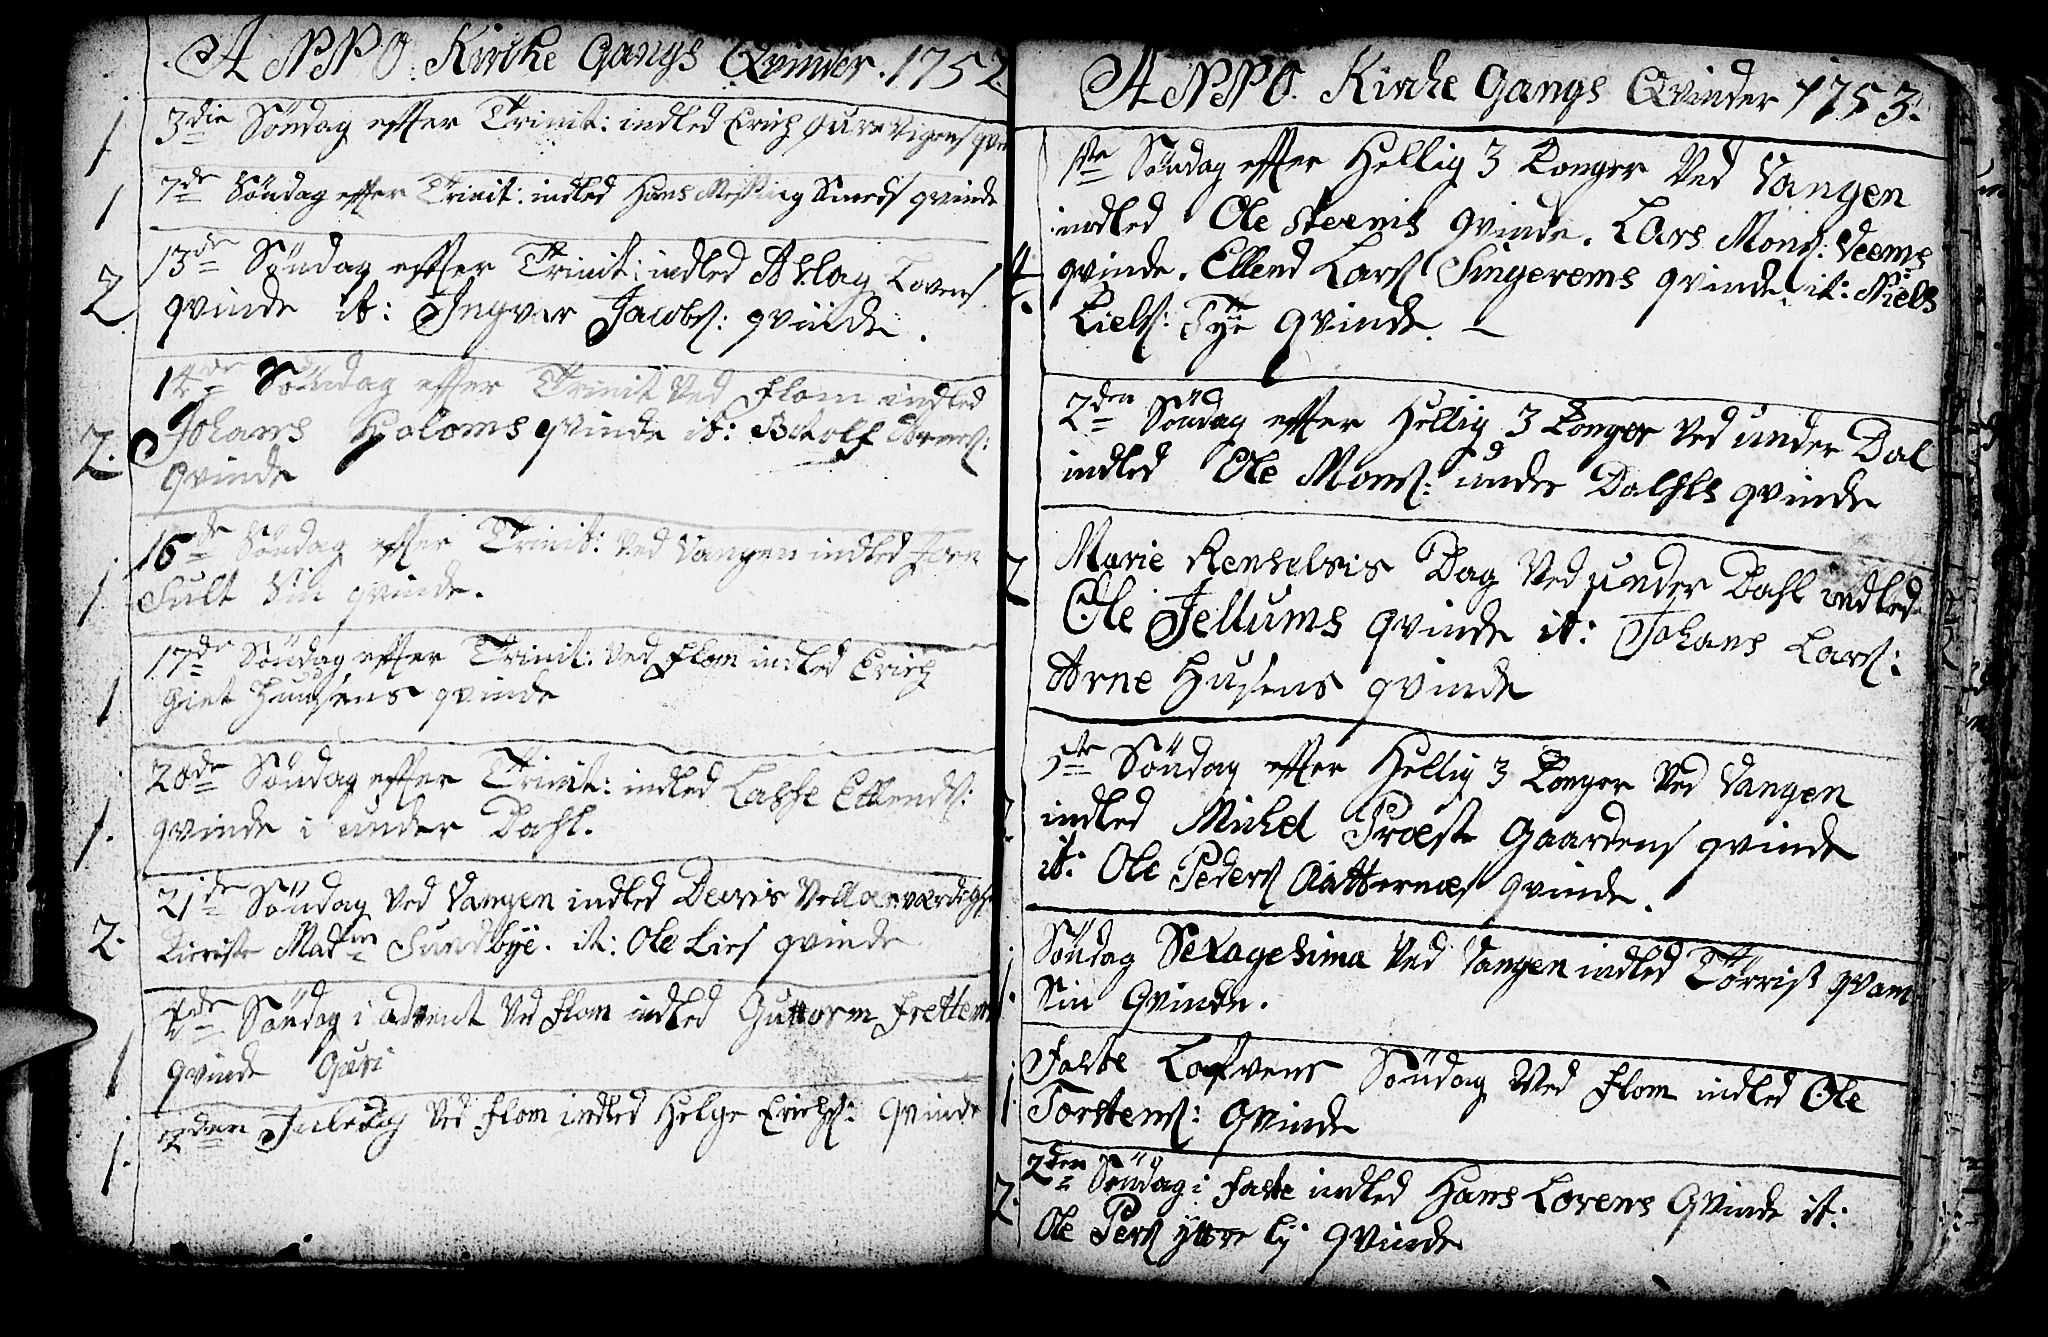 ANNO. Kirke Gangs Qvinder. 1752.
1 3die Söndag effter Trinit: indled Erich
1 7de Söndag effter Trinit: indled Hans Smeds qvinde
13de Söndag effter Trinit: indled Aslag
2. qvinde it: Ingvar Jacobs: qvinde.
14de Söndag effter Trinit Ved Flom indled
2. Johans Holoms qvinde it: Botolf
qvinde
16de Söndag effter Trinit: Ved Vangen indled
1 Sin qvinde.
17de Söndag effter Trinit: Ved Flom indled Erich
1 qvinde
20de Söndag effter Trinit: indled Lasse Ellends:
1. qvinde i under Dahl.
21de Söndag Ved Vangen indled
2. Madm Sundbye. it: Ole Lies qvinde
Söndag i advent Ved Flom indled Guttorm
1 qvinde Guri
1. 2den Juledag Ved Flom indled Helge Erichs: qvinde
ANNO. Kirche Gangs Qvinder 1753.
1ste Söndag effter Hellig 3 Konger Ved Vangen
indled Ole qvinde. Lars Mons: Veems
4. qvinde. Ellend Lars qvinde, it: Niels
Niels: Tye qvinde.
2den Söndag effter Hellig 3 Konger Ved under Dal
indled Ole Mons: under Dahls qvinde
2 Marie Renselsis Dag Ved under Dahl indled
Ole Jellums qvinde it: Johans Lars:
Arne Husens qvinde
5te Söndag effter Hellig 3 Konger Ved Vangen
2. indled Michel Præste Gaardens qvinde
it: Ole Peders qvinde.
Söndag Sexagesima Ved Vangen indled Törris qvam
1. Sin Qvinde.
Faste Löfvens Söndag Ved Flom indled Ole
1 Torstens: qvinde
2den Söndag i Faste indled Hans Lorens Qvinde it:
2. Ole Pers yttre Ly qvinde